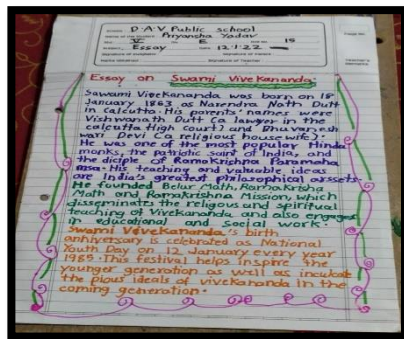 D.A.V Public School
Priyansha Yadav
V E 15
Essay 12.1.22
Essay on Swami Vivekananda:
Sawami Vivekananda was born on 18
January 1863 as Narendra Nath Dutt
in Calcutta. His parents' namer were
Vishwanath Dutt Ca lawyer in the
calcutta High court) and Bhuvanesh
wari Devi Ca religious housewife).
He was one of the most popular Hindu
monks, the patriotic saint of India, and
the diciple of Ramakrishna Paramaha
msa. His teaching and valuable ideas
are India's greatest philosophical assets.
He founded Belur Math, Ramakrishna
Math and Ramakrishna Mission, which
disseminates the religous and spiritual
teaching of Vivekananda, and also engages
in educational and social work.
Swami Vivekananda's birth
anniversary is celebrated as National
Youth Day on 12 January every year
1985. This festival helps inspire the
younger generation as well as inculcate
the pious ideals of vivekananda in the
coming generation.